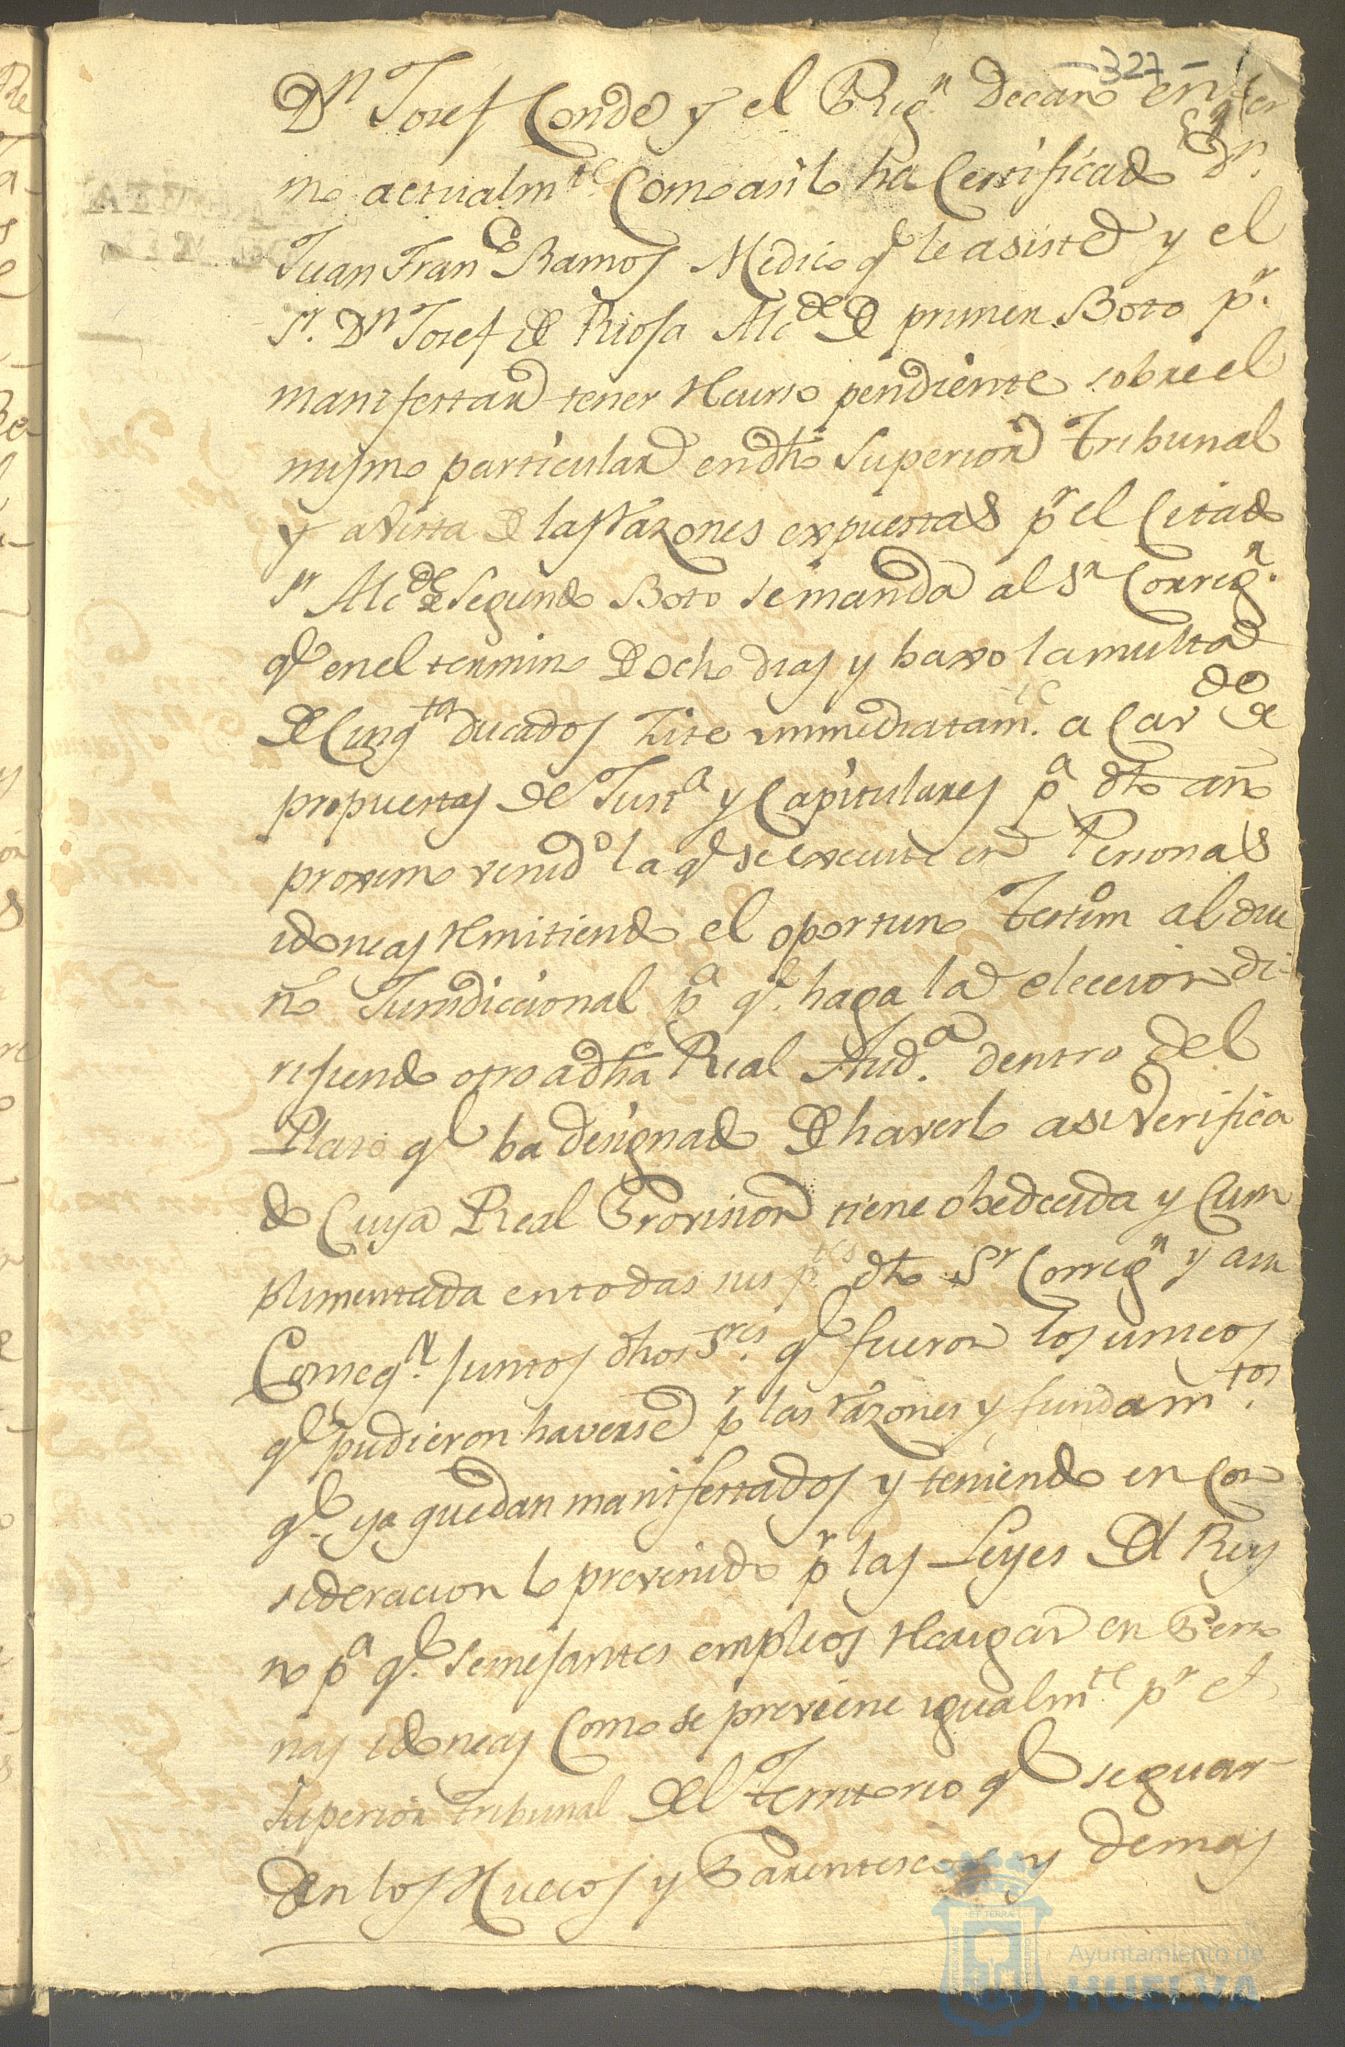 -327-
Dn Josef Conde y el Regn. Decano enfer
mo actualmte. Como asi lo ha Certificado Dn.
Juan Franco Ramos Medico qe le asiste y el
Sr. Dn Josef de Riosa Alcde de primer Boto pr.
manifestar tener Recurso pendiente sobre el
mismo particular en dho Superior Tribunal
y a Vista de las razones expuestas pr el Citado
Sr Alcde de Segundo Boto se manda al Sr Corregn.
qe en el termino de ocho dias y baxo la multa
de Cinqta ducados Zite immediatamte. a Cavdo de
propuestas de Justa y Capitulares pa dho año
proximo venido la qe se execute en Personas
idoneas Remitiendo el oportuno Testimo al due
ño Jurisdiccional pa qe. haga la eleccion di-
rijiendo otro a dha Real Auda. dentro del
Plazo qe ba designado de haverlo asi Verifica
do Cuya Real Provision tiene obedecida y Cum
plimentada en todas sus ptes dho Sr Corregn y en su
Conseqa. juntos dhos Sres. qe fueron los unicos
qe pudieron haverse pr las razones y fundamtos.
qe. ya quedan manifestados y teniendo en Con
sideracion lo prevenido pr las Leyes del Rey
no pa qe. semejantes empleos Recaigan en Perso
nas idoneas Como se previene igualmte pr el
Superior Tribunal del Territorio qe se guar-
den los Huecos y Parentescos y demas
Ayuntamiento de
HUELVA